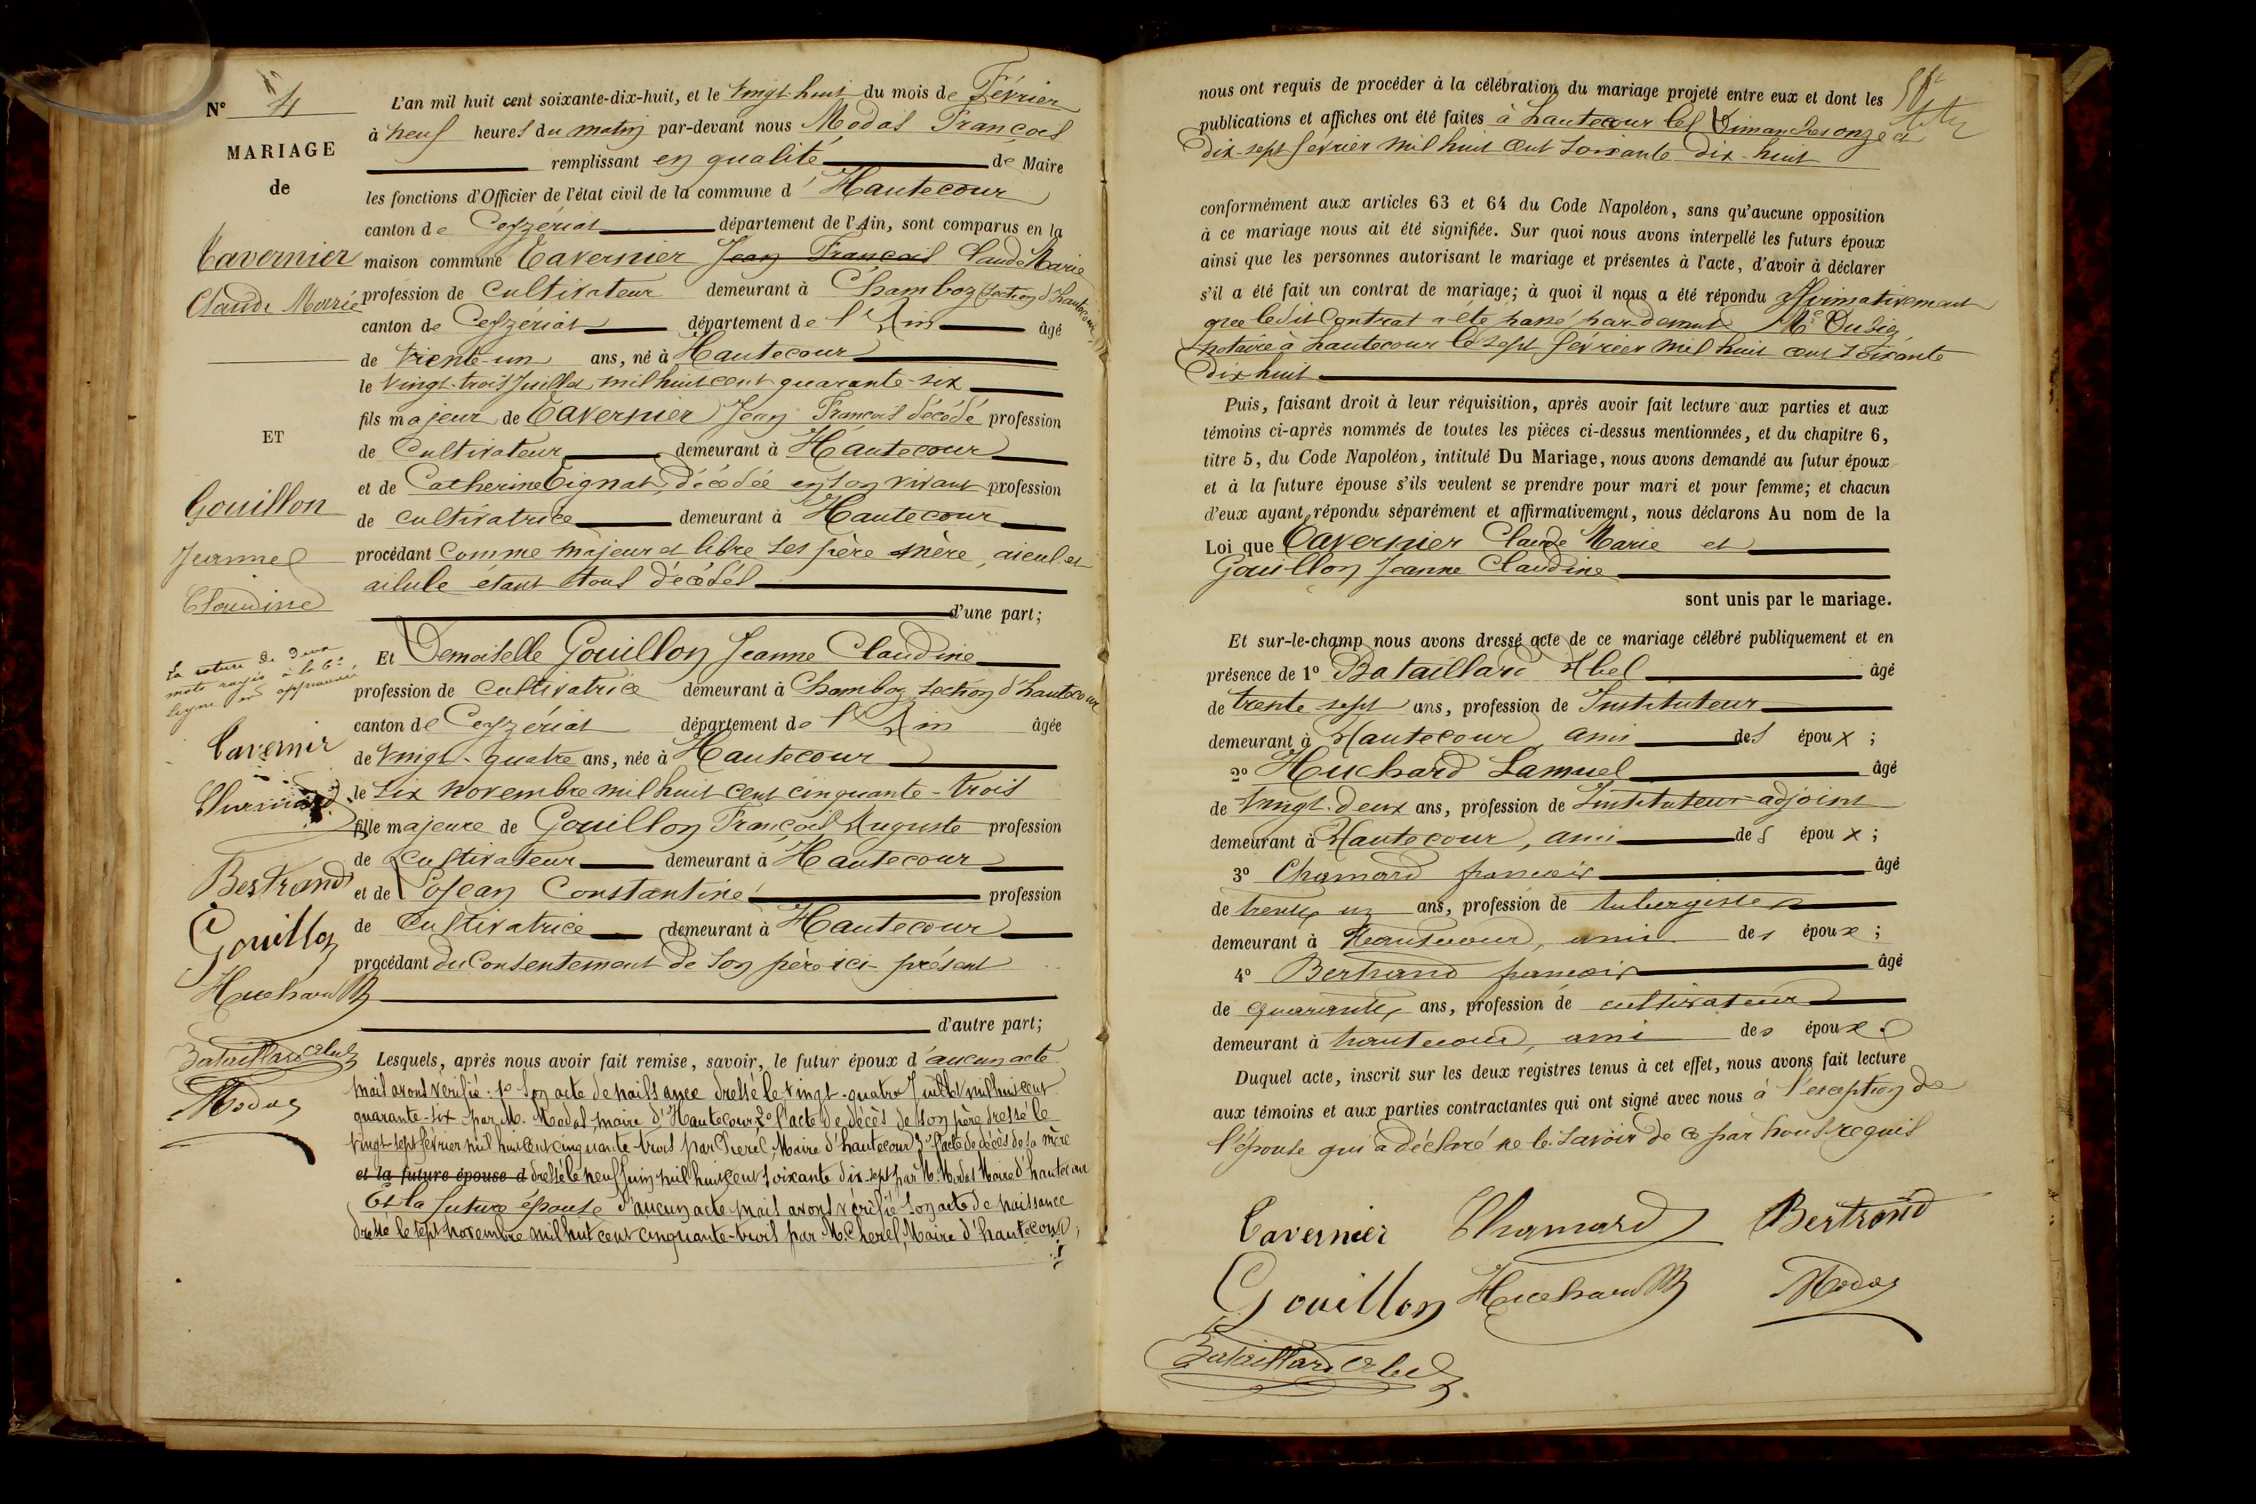 N° 4
MARIAGE
de
Tavernier
Claude Marie
ET
Gouillon
Jeanne
Claudine
La rature de deux
mots rayés à la 6e
ligne est approuvée
Tavernier
Chamard
Bertrand
Gouillon
Huchard
Bataillard Abel
Modas
L'an mil huit cent soixante-dix-huit, et le vingt-huit du mois de Février
à neuf heures du matin par-devant nous Modas François
remplissant en qualité de Maire
les fonctions d'Officier de l'état civil de la commune d'Hautecour
canton de Ceyzériat département de l'Ain, sont comparus en la
maison commune Tavernier Jean François Claude Marie
profession de Cultivateur demeurant à Chamboz section d'hautecour
canton de Ceyzériat département de l'Ain âgé
de trente-un ans, né à Hautecour
le vingt-trois Juillet mil huit cent quarante-six
fils majeur de Tavernier Jean François décédé profession
de Cultivateur demeurant à Hautecour
et de Catherine Tignat, décédée en son vivant profession
de cultivatrice demeurant à Hautecour
procédant comme majeur et libre ses père mère, aieul et
aïlule étant tous décédés
d'une part;
Et Demoiselle Gouillon Jeanne Claudine
profession de cultivatrice demeurant à Chamboz section d'hautecour
canton de Ceyzériat département de l'Ain âgée
de vingt-quatre ans, née à Hautecour
le six novembre mil huit cent cinquante-trois
fille majeure de Gouillon François Auguste profession
de cultivateur demeurant à Hautecour
et de Josean Constantine profession
de cultivatrice demeurant à Hautecour
procédant du Consentement de son père ici présent
d'autre part;
Lesquels, après nous avoir fait remise, savoir, le futur époux d'aucun acte
mais avons vérifié: 1° Son acte de naissance dressé le vingt-quatre Juillet mil huit cent
quarante-six par M. Modas, maire d'Hautecour 2° l'acte de décès de son père dressé le
vingt-sept février mil huit cent cinquante-trois par Cherel, Maire d'hautecour 3° l'acte de décès de sa mère
et la future épouse d dressé le neuf Juin mil huit cent soixante dix-sept par M. Modas Maire d'hautecour
Et la future épouse d'aucun acte mais avons vérifié son acte de naissance
dressé le sept novembre mil huit cent cinquante-trois par M. Cherel, Maire d'hautecour;
nous ont requis de procéder à la célébration du mariage projeté entre eux et dont les
publications et affiches ont été faites à hautecour les Dimanches onze et
dix-sept février mil huit cent soixante-dix-huit
conformément aux articles 63 et 64 du Code Napoléon, sans qu'aucune opposition
à ce mariage nous ait été signifiée. Sur quoi nous avons interpellé les futurs époux
ainsi que les personnes autorisant le mariage et présentes à l'acte, d'avoir à déclarer
s'il a été fait un contrat de mariage; à quoi il nous a été répondu affirmativement
que ledit Contrat a été passé par-devant Me Dubié
notaire à hautecour le sept février mil huit cent soixante
dix huit
Puis, faisant droit à leur réquisition, après avoir fait lecture aux parties et aux
témoins ci-après nommés de toutes les pièces ci-dessus mentionnées, et du chapitre 6,
titre 5, du Code Napoléon, intitulé Du Mariage, nous avons demandé au futur époux
et à la future épouse s'ils veulent se prendre pour mari et pour femme; et chacun
d'eux ayant répondu séparément et affirmativement, nous déclarons Au nom de la
Loi que Tavernier Claude Marie et
Gouillon Jeanne Claudine
sont unis par le mariage.
Et sur-le-champ nous avons dressé acte de ce mariage célébré publiquement et en
présence de 1° Bataillard Abel âgé
de trente-sept ans, profession de Instituteur
demeurant à Hautecour ami des époux;
2° Huchard Samuel âgé
de vingt-deux ans, profession de Instituteur adjoint
demeurant à Hautecour, ami des époux;
3° Chamard françois âgé
de trente un ans, profession de Aubergiste
demeurant à Hautecour, ami des époux;
4° Bertrand françois âgé
de quarante, ans, profession de cultivateur
demeurant à hautecour, ami des époux.
Duquel acte, inscrit sur les deux registres tenus à cet effet, nous avons fait lecture
aux témoins et aux parties contractantes qui ont signé avec nous à l'exception de
l'épouse qui a déclaré ne le savoir de ce par nous requis
Tavernier Chamard Bertrand
Gouillon Huchard Modas
Bataillard Abel